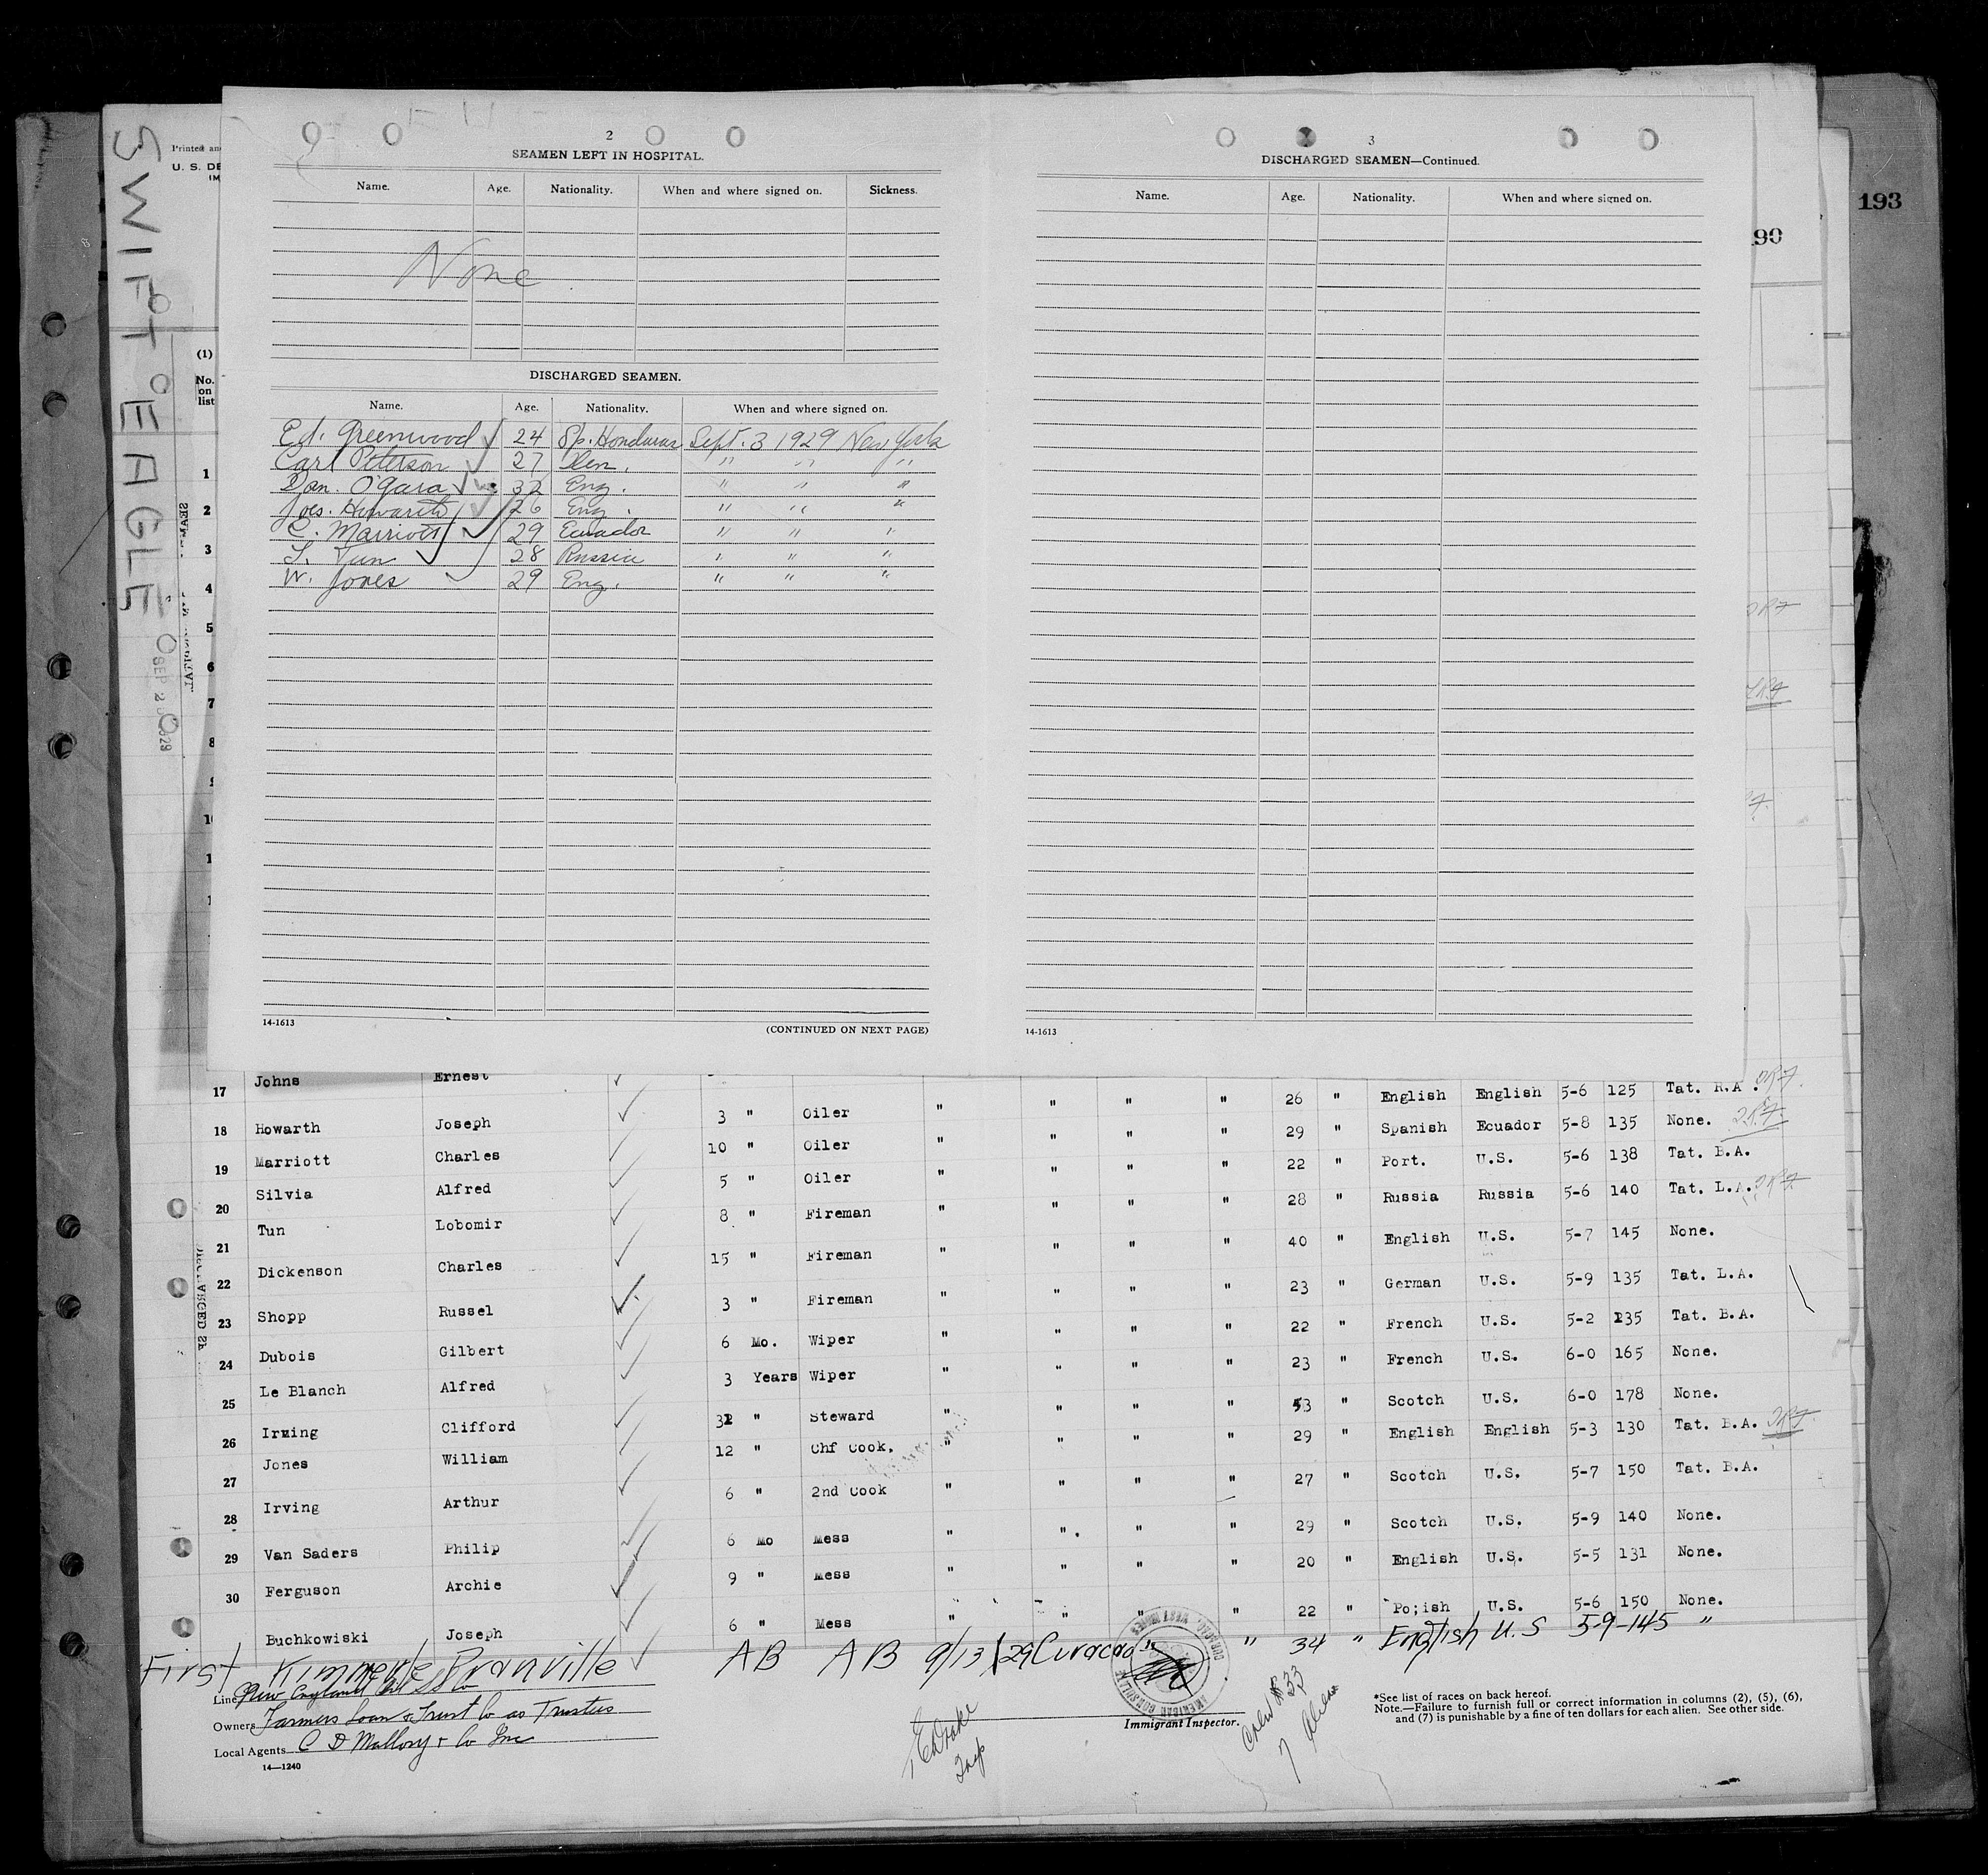 193
90
SWIFT EAGLE
Printed an
U. S. DE
IM
(1)
No.
on
list
1
2
3
4
5
6
7
8
2
SEAMEN LEFT IN HOSPITAL.
Name. Age. Nationality. When and where signed on. Sickness.
None
DISCHARGED SEAMEN.
Name. Age. Nationality. When and where signed on.
Ed. Greenwood 24 Sp. Honduras Sept. 3 1929 New York
Carl Peterson 27 Den. " " "
Dan. O'Gara 32 Eng. " " "
Jos. Howarth 26 Eng. " " "
C. Marriott 29 Ecuador " " "
L. Tun 28 Russia " " "
W. Jones 29 Eng. " " "
14-1613 (CONTINUED ON NEXT PAGE)
3
DISCHARGED SEAMEN—Continued.
Name. Age. Nationality. When and where signed on.
14-1613
17 Johns Ernest
18 Howarth Joseph 3 " Oiler " " " " 26 " English English 5-6 125 Tat. R.A.
19 Marriott Charles 10 " Oiler " " " " 29 " Spanish Ecuador 5-8 135 None.
20 Silvia Alfred 5 " Oiler " " " " 22 " Port. U.S. 5-6 138 Tat. B.A.
21 Tun Lobomir 8 " Fireman " " " " 28 " Russia Russia 5-6 140 Tat. L.A.
22 Dickenson Charles 15 " Fireman " " " " 40 " English U.S. 5-7 145 None.
23 Shopp Russel 3 " Fireman " " " " 23 " German U.S. 5-9 135 Tat. L.A.
24 Dubois Gilbert 6 Mo. Wiper " " " " 22 " French U.S. 5-2 135 Tat. B.A.
25 Le Blanch Alfred 3 Years Wiper " " " " 23 " French U.S. 6-0 165 None.
26 Irving Clifford 32 " Steward " " " " 53 " Scotch U.S. 6-0 178 None.
27 Jones William 12 " Chf Cook. " " " " 29 " English English 5-3 130 Tat. B.A.
28 Irving Arthur 6 " 2nd Cook " " " " 27 " Scotch U.S. 5-7 150 Tat. B.A.
29 Van Saders Philip 6 Mo Mess " " " " 29 " Scotch U.S. 5-9 140 None.
30 Ferguson Archie 9 " Mess " " " " 20 " English U.S. 5-5 131 None.
Buchkowiski Joseph 6 " Mess " " " " 22 " Po;ish U.S. 5-6 150 None.
First Kimmerle Branville AB AB 9/13/29 Curacao " " 34 " English U.S 5-9-145 "
Line New England Oil SS Co
Owners Farmers Loan & Trust Co as Trustees
Local Agents C D Mallory & Co Inc
14—1240
Immigrant Inspector.
Crew # 33
7 Aliens
*See list of races on back hereof.
Note.—Failure to furnish full or correct information in columns (2), (5), (6),
and (7) is punishable by a fine of ten dollars for each alien. See other side.